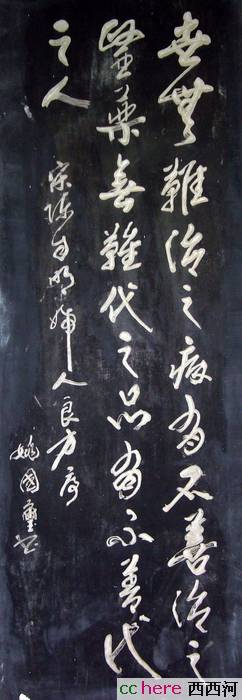 世无难治之疾有不善治之
医药无难代之品有不善代
之人
宋陈自明妇人良方序
姚国瑾书
cchere 西西河